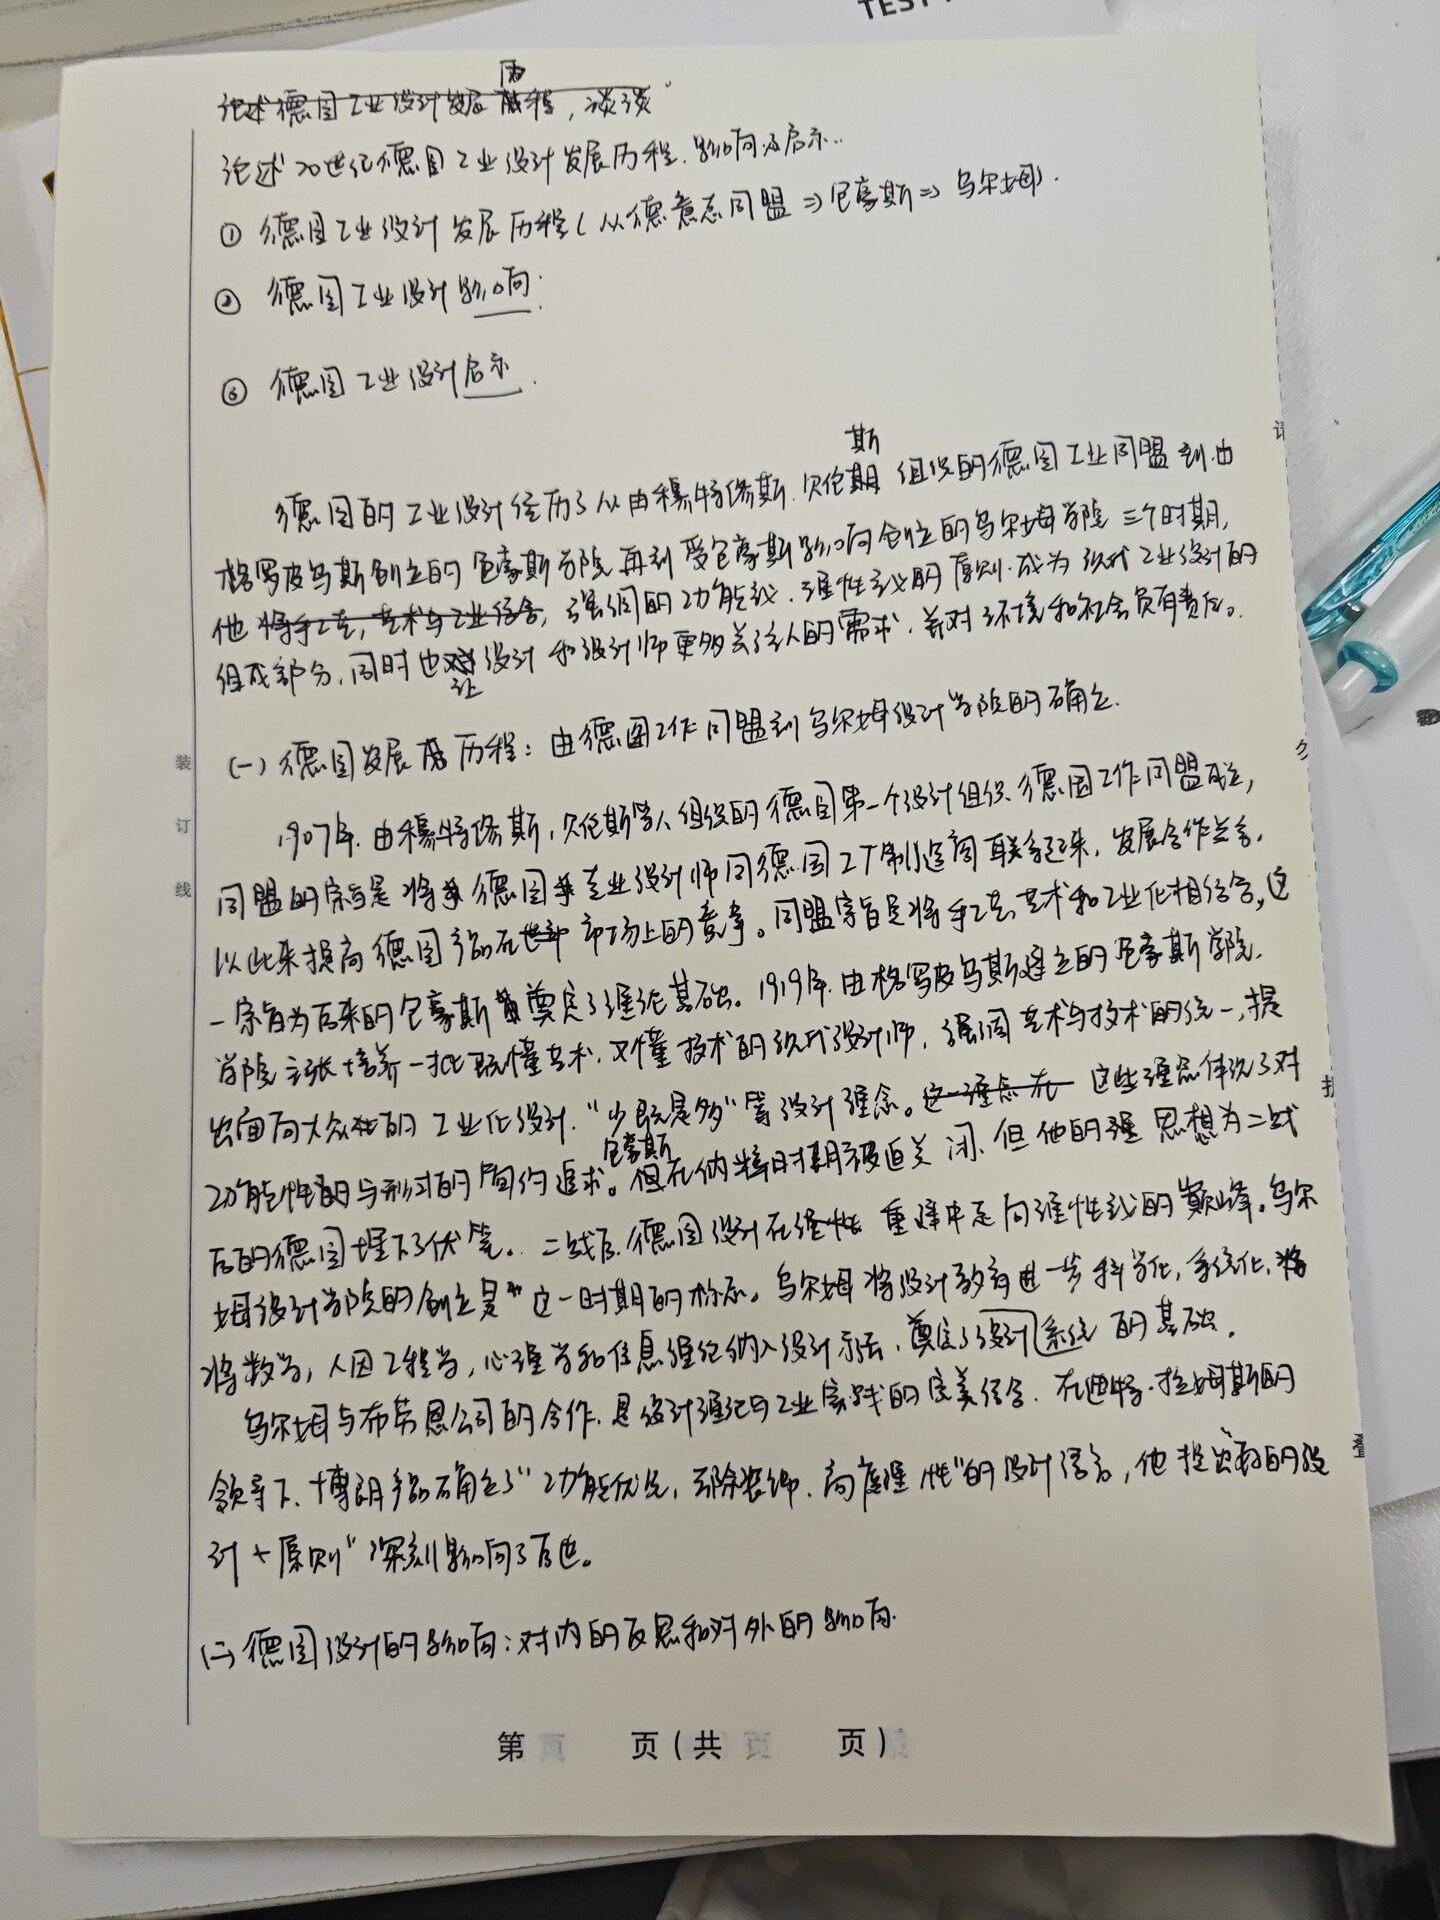 TEST
论述德国工业设计发展历程，谈谈
论述20世纪德国工业设计发展历程、影响及启示..
① 德国工业设计发展历程（从德意志同盟⇒包豪斯⇒乌尔姆）.
② 德国工业设计影响：
③ 德国工业设计启示.
德国的工业设计经历了从由穆特修斯、贝伦斯组织的德国工业同盟到由
格罗皮乌斯创立的包豪斯学院再到受包豪斯影响创立的乌尔姆学院三个时期，
他将手工艺，艺术与工业结合，强调的功能主义、理性主义的原则.成为现代工业设计的
组成部分，同时也让设计和设计师更多关注人的需求，并对环境和社会负有责任。
(一) 德国发展历程：由德国工作同盟到乌尔姆设计学院的确立.
1907年.由穆特修斯，贝伦斯等人组织的德国第一个设计组织、德国工作同盟成立，
同盟的宗旨是将德国专业设计师同德国工厂制造商联系起来，发展合作关系.
以此来提高德国产品在世界市场上的竞争。同盟宗旨是将手工艺、艺术和工业化相结合，这
一宗旨为后来的包豪斯奠定了理论基础。1919年.由格罗皮乌斯建立的包豪斯学院.
学院主张培养一批既懂艺术，又懂技术的现代设计师，强调艺术与技术的统一，提
出面向大众的工业化设计.“少既是多”等设计理念。这一理念在 这些理念体现了对
功能性的与形式的简约追求。但包豪斯在纳粹时期被迫关闭、但他的理思想为二战
后的德国埋下了伏笔。二战后.德国设计在理性 重建中走向理性主义的巅峰。乌尔
姆设计学院的创立是这一时期的标志。乌尔姆将设计教育进一步科学化，系统化、将
将数学，人因工程学，心理学和信息理论纳入设计方法，奠定了设计系统的基础.
乌尔姆与布劳恩公司的合作.是设计理论与工业实践的完美结合.在迪特·拉姆斯的
领导下、博朗产品确立了“功能优先，去除装饰、高度理性”的设计语言，他提出“好的设
计十原则”深刻影响了后世。
(二) 德国设计的影响：对内的反思和对外的影响.
装
订
线
请
勿
折
叠
第 页（共 页）